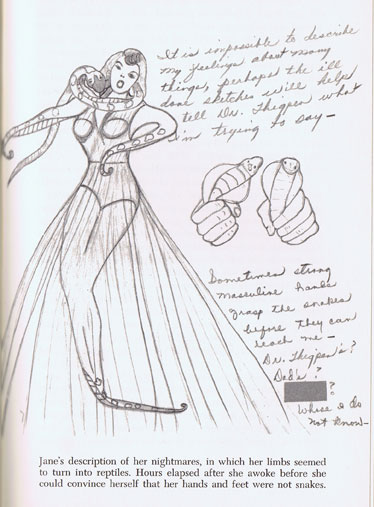 It is impossible to describe
my feelings about many
things, perhaps the ill
done sketches will help
tell Dr. Thigpen what
I'm trying to say—
Sometimes strong
masculine hands
grasp the snakes
before they can
reach me—
Dr. Thigpen's?
Dad's?
?
Whose I do
not know—
Jane's description of her nightmares, in which her limbs seemed
to turn into reptiles. Hours elapsed after she awoke before she
could convince herself that her hands and feet were not snakes.